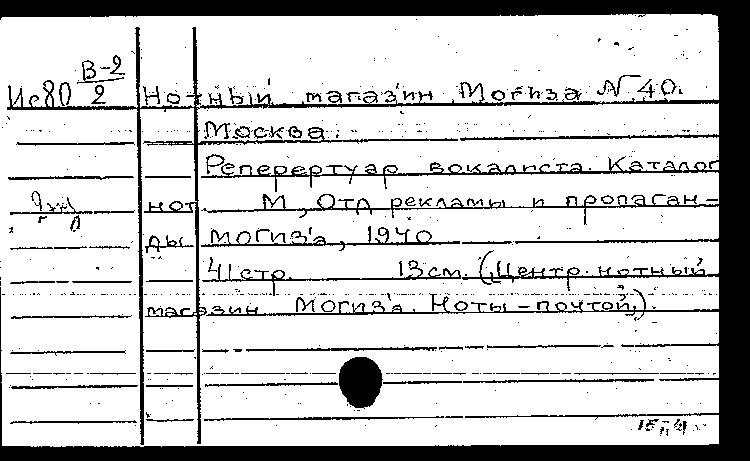 В-2
Ис80 2 Нотный магазин Могиза N 40.
Москва.
Репертуар вокалиста. Каталог
нот. М, Отд рекламы и пропаган=
ды МОГИЗ'а, 1940
41 стр. 13 см. (Центр. нотный
магазин МОГИЗ'а. Ноты - почтой).